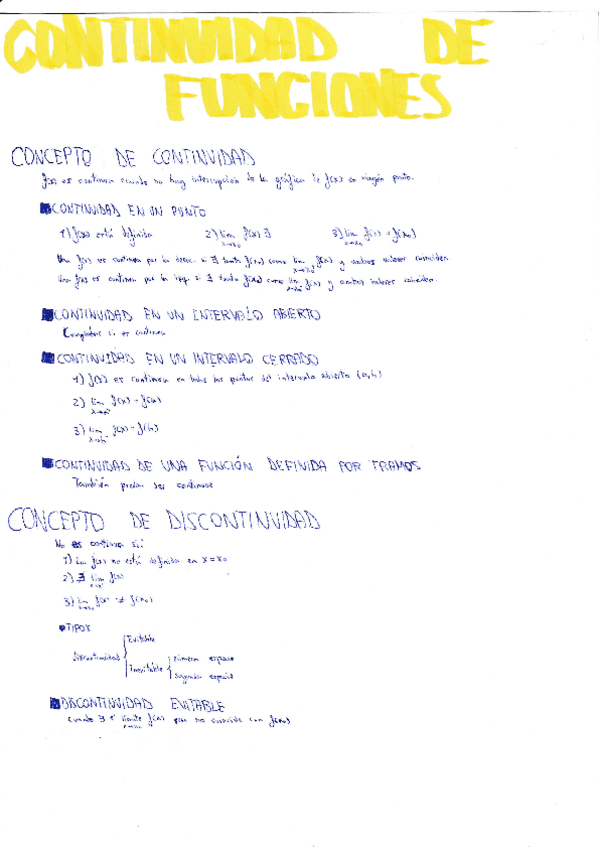 CONTINUIDAD DE
FUNCIONES
CONCEPTO DE CONTINUIDAD
f(x) es continua cuando no hay interrupción de la gráfica de f(x) en ningún punto.
CONTINUIDAD EN UN PUNTO
1) f(x) está definida 2) lim x→x₀ f(x) ∃ 3) lim x→x₀ f(x) = f(x₀)
Una f(x) es continua por la si ∃ tanto f(x₀) como lim f(x) y ambos valores coinciden.
Una f(x) es continua por la izq. si ∃ tanto f(x₀) como lim f(x) y ambos valores coinciden.
CONTINUIDAD EN UN INTERVALO ABIERTO
si es continua
CONTINUIDAD EN UN INTERVALO CERRADO
1) f(x) es continua en todos los puntos del intervalo abierto (a,b)
2) lim f(x) = f(a)
3) lim f(x) = f(b)
CONTINUIDAD DE UNA FUNCIÓN DEFINIDA POR TRAMOS
También pueden ser continuas
CONCEPTO DE DISCONTINUIDAD
No es continua si:
1) f(x) no está definida en x=x₀
2) ∄ lim f(x)
3) lim f(x) ≠ f(x₀)
TIPOS
Evitable
Discontinuidad
Inevitable
primera especie
segunda especie
DISCONTINUIDAD EVITABLE
cuando ∃ el límite f(x) pero no coincide con f(x₀)